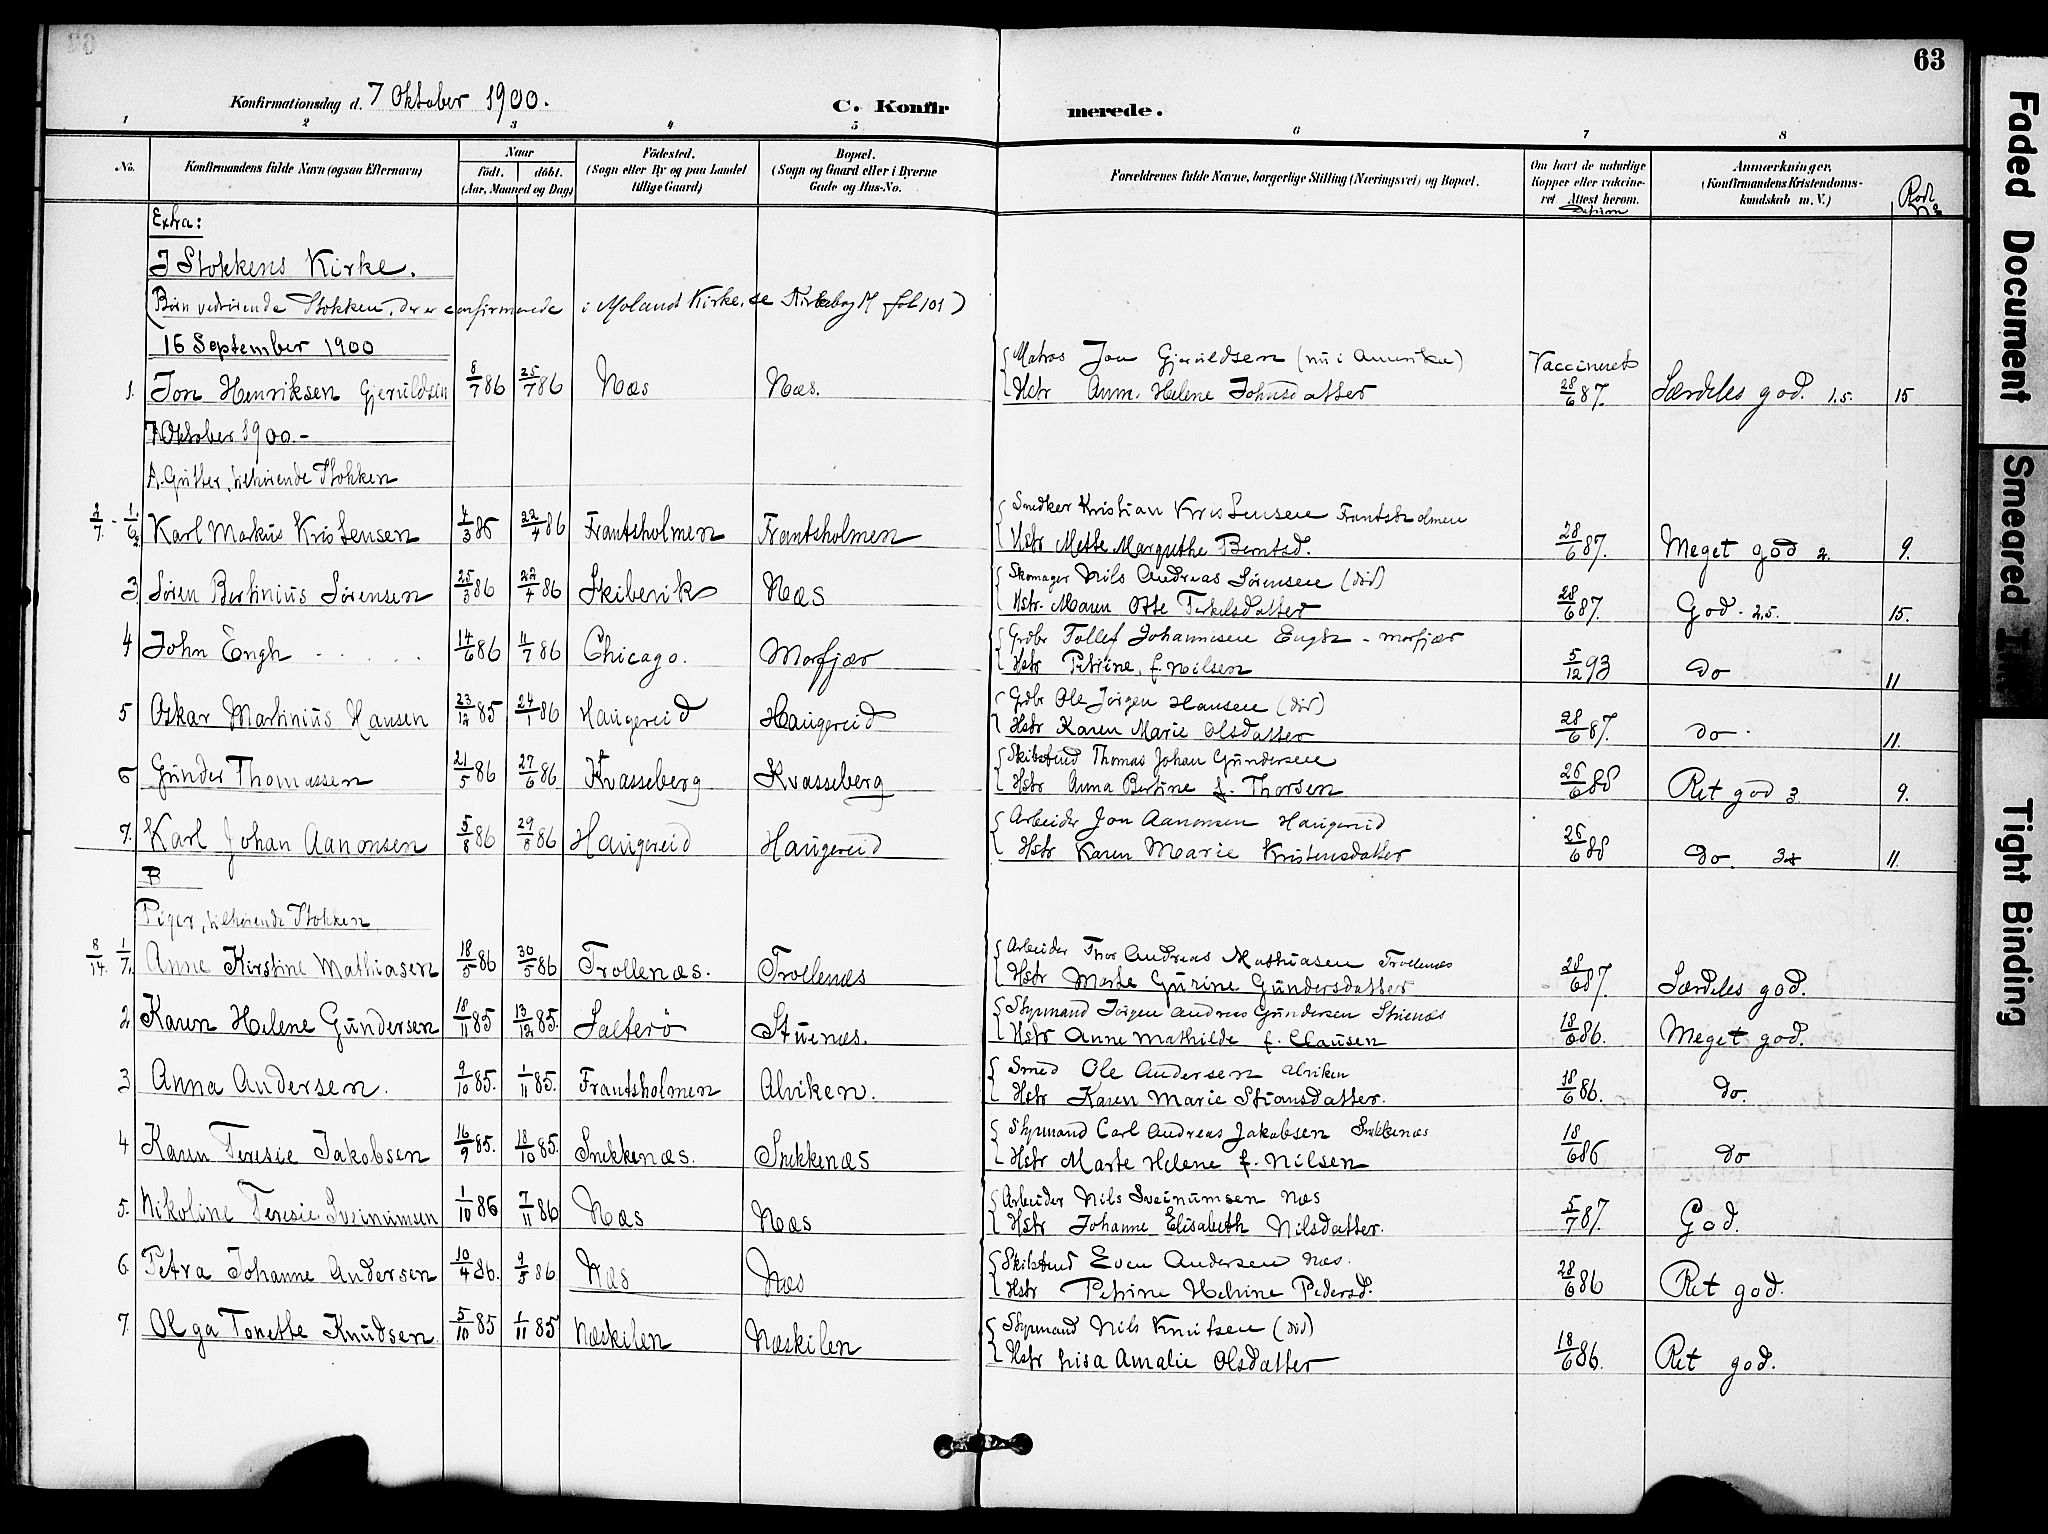 63
Konfirmationsdag d. 7 Oktober 1900.
C. Konfir merede.
1 2 3 4 5 6 7 8
No.
Konfirmandens fulde Navn (ogsaa Efternavn)
Naar
födt. döbt.
(Aar, Maaned og Dag)
Födested.
(Sogn eller By og paa Landet
tillige Gaard)
Bopæl.
(Sogn og Gaard eller i Byerne
Gade og Hus-No.
Forældrenes fulde Navne, borgerlige Stilling (Næringsvei) og Bopæl.
Om havt de naturlige
Kopper eller vakcine-
ret Attest herom.
Datum
Anmærkninger,
(Konfirmandens Kristendoms-
kundskab m. V.)
Rode
No
Extra:
I Stokkens Kirke.
(Børn vedrørende Stokken, der er confirmerede i Moland Kirke, se Kirkebog M fol 101)
16 September 1900
Matros Jon Gjeruldsen (nu i Amerika) Vaccineret
1. Jon Henriksen Gjeruldsen 8/7 86 25/7 86 Næs Næs. Hstr Anna Helene Johnsdatter 28/6 87. Særdeles god. 1.5 15
7 Oktober 1900.-
A. Gutter, tilhørende Stokken
Snedker Kristian Kristensen Frantsholmen
2/7 - 1/6 2 Karl Markus Kristensen 4/3 86 22/4 86 Frantsholmen Frantsholmen Hstr Mette Margrethe Berntsd. 28/6 87. Meget god 2. 9.
Skomager Nils Andreas Sørensen (död)
3. Søren Bertinius Sørensen 25/3 86 22/4 86 Skibevik Næs Hstr. Maren Otte Terkelsdatter 28/6 87. God. 2.5. 15.
Grdbr Tollef Johannesen Engh - Morfjær
4 John Engh 14/6 86 11/7 86 Chicago. Morfjær Hstr Petrine, f. Nilsen 5/12 93 do 11
Grdbr Ole Jörgen Hansen (död)
5 Oskar Martinius Hansen 23/12 85 24/1 86 Haugereid Haugereid Hstr Karen Marie Olsdatter 28/6 87. do. 11.
Skibstmd Thomas Johan Gundersen
6 Gunder Thomassen 21/5 86 27/6 86 Kvasseberg Kvasseberg Hstr Anna Bertine f. Thorsen 26/6 88 Ret god 3 9.
Arbeider Jon Aanonsen Haugereid
7. Karl Johan Aanonsen 5/8 86 29/8 86 Haugereid Haugereid Hstr Karen Marie Kristensdatter 26/6 88 do. 11.
B
Piger, tilhørende Stokken
Arbeider Thor Andreas Mathiasen Trollenæs
8/14. 1/7. Anne Kirstine Mathiasen 18/5 86 30/5 86 Trollenæs. Trollenæs Hstr Marte Gurine Gundersdatter 28/6 87. Særdeles god.
Styrmand Jörgen Andreas Gundersen Stuenæs
2 Karen Helene Gundersen 18/11 85 13/12 85. Salterö Stuenæs. Hstr Anne Mathilde f. Clausen 18/6 86. Meget god.
Smed Ole Andersen Alviken
3 Anna Andersen. 9/10 85. 1/11 85. Frantsholmen Alviken. Hstr Karen Marie Stiansdatter. 18/6 86. do.
Styrmand Carl Andreas Jakobsen Snekkenæs
4 Karen Teresie Jakobsen 16/9 85. 18/10 85. Snekkenæs. Snekkenæs Hstr Marte Helene f. Nilsen 18/6 86 do
Arbeider Nils Sveinumsen Næs
5. Nikoline Teresie Sveinumsen 1/10 86 7/11 86 Næs Næs Hstr Johanne Elisabeth Nilsdatter. 5/7 87. God.
Skibstmd Even Andersen Næs.
6 Petra Johanne Andersen 10/4 86. 9/5 86 Næs Næs Hstr Petrine Helvine Pedersd. 28/6 86 Ret god.
Styrmand Nils Knutsen (död)
7. Olga Tonette Knudsen. 5/10 85 1/11 85 Næskilen Næskilen Hstr Lisa Amalie Olsdatter 18/6 86. Ret god.
Faded Document
Smeared Ink
Tight Binding